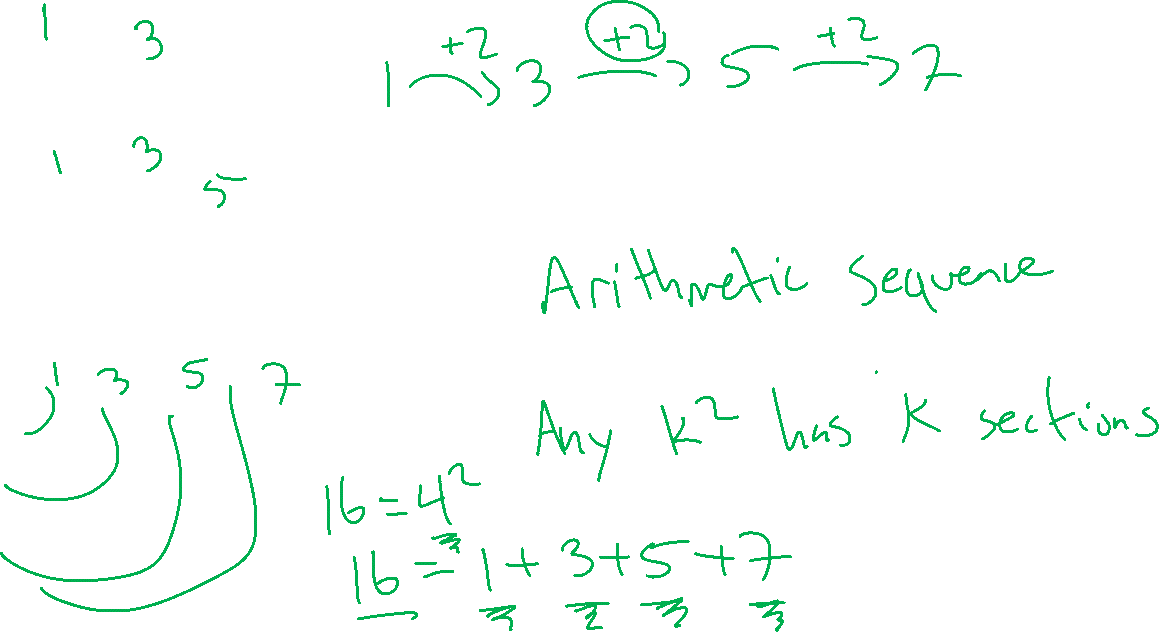 1 3
+2 +2 +2
1 3 5 7
1 3
5
Arithmetic sequence
1 3 5 7
Any k² has k sections
16=4²
16=1+3+5+7